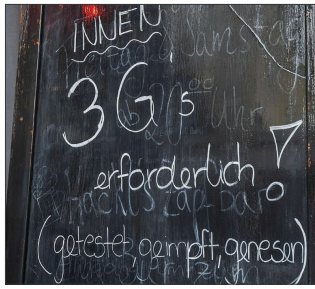 INNEN
3G's
erforderlich!
(getestet, geimpft, genesen)